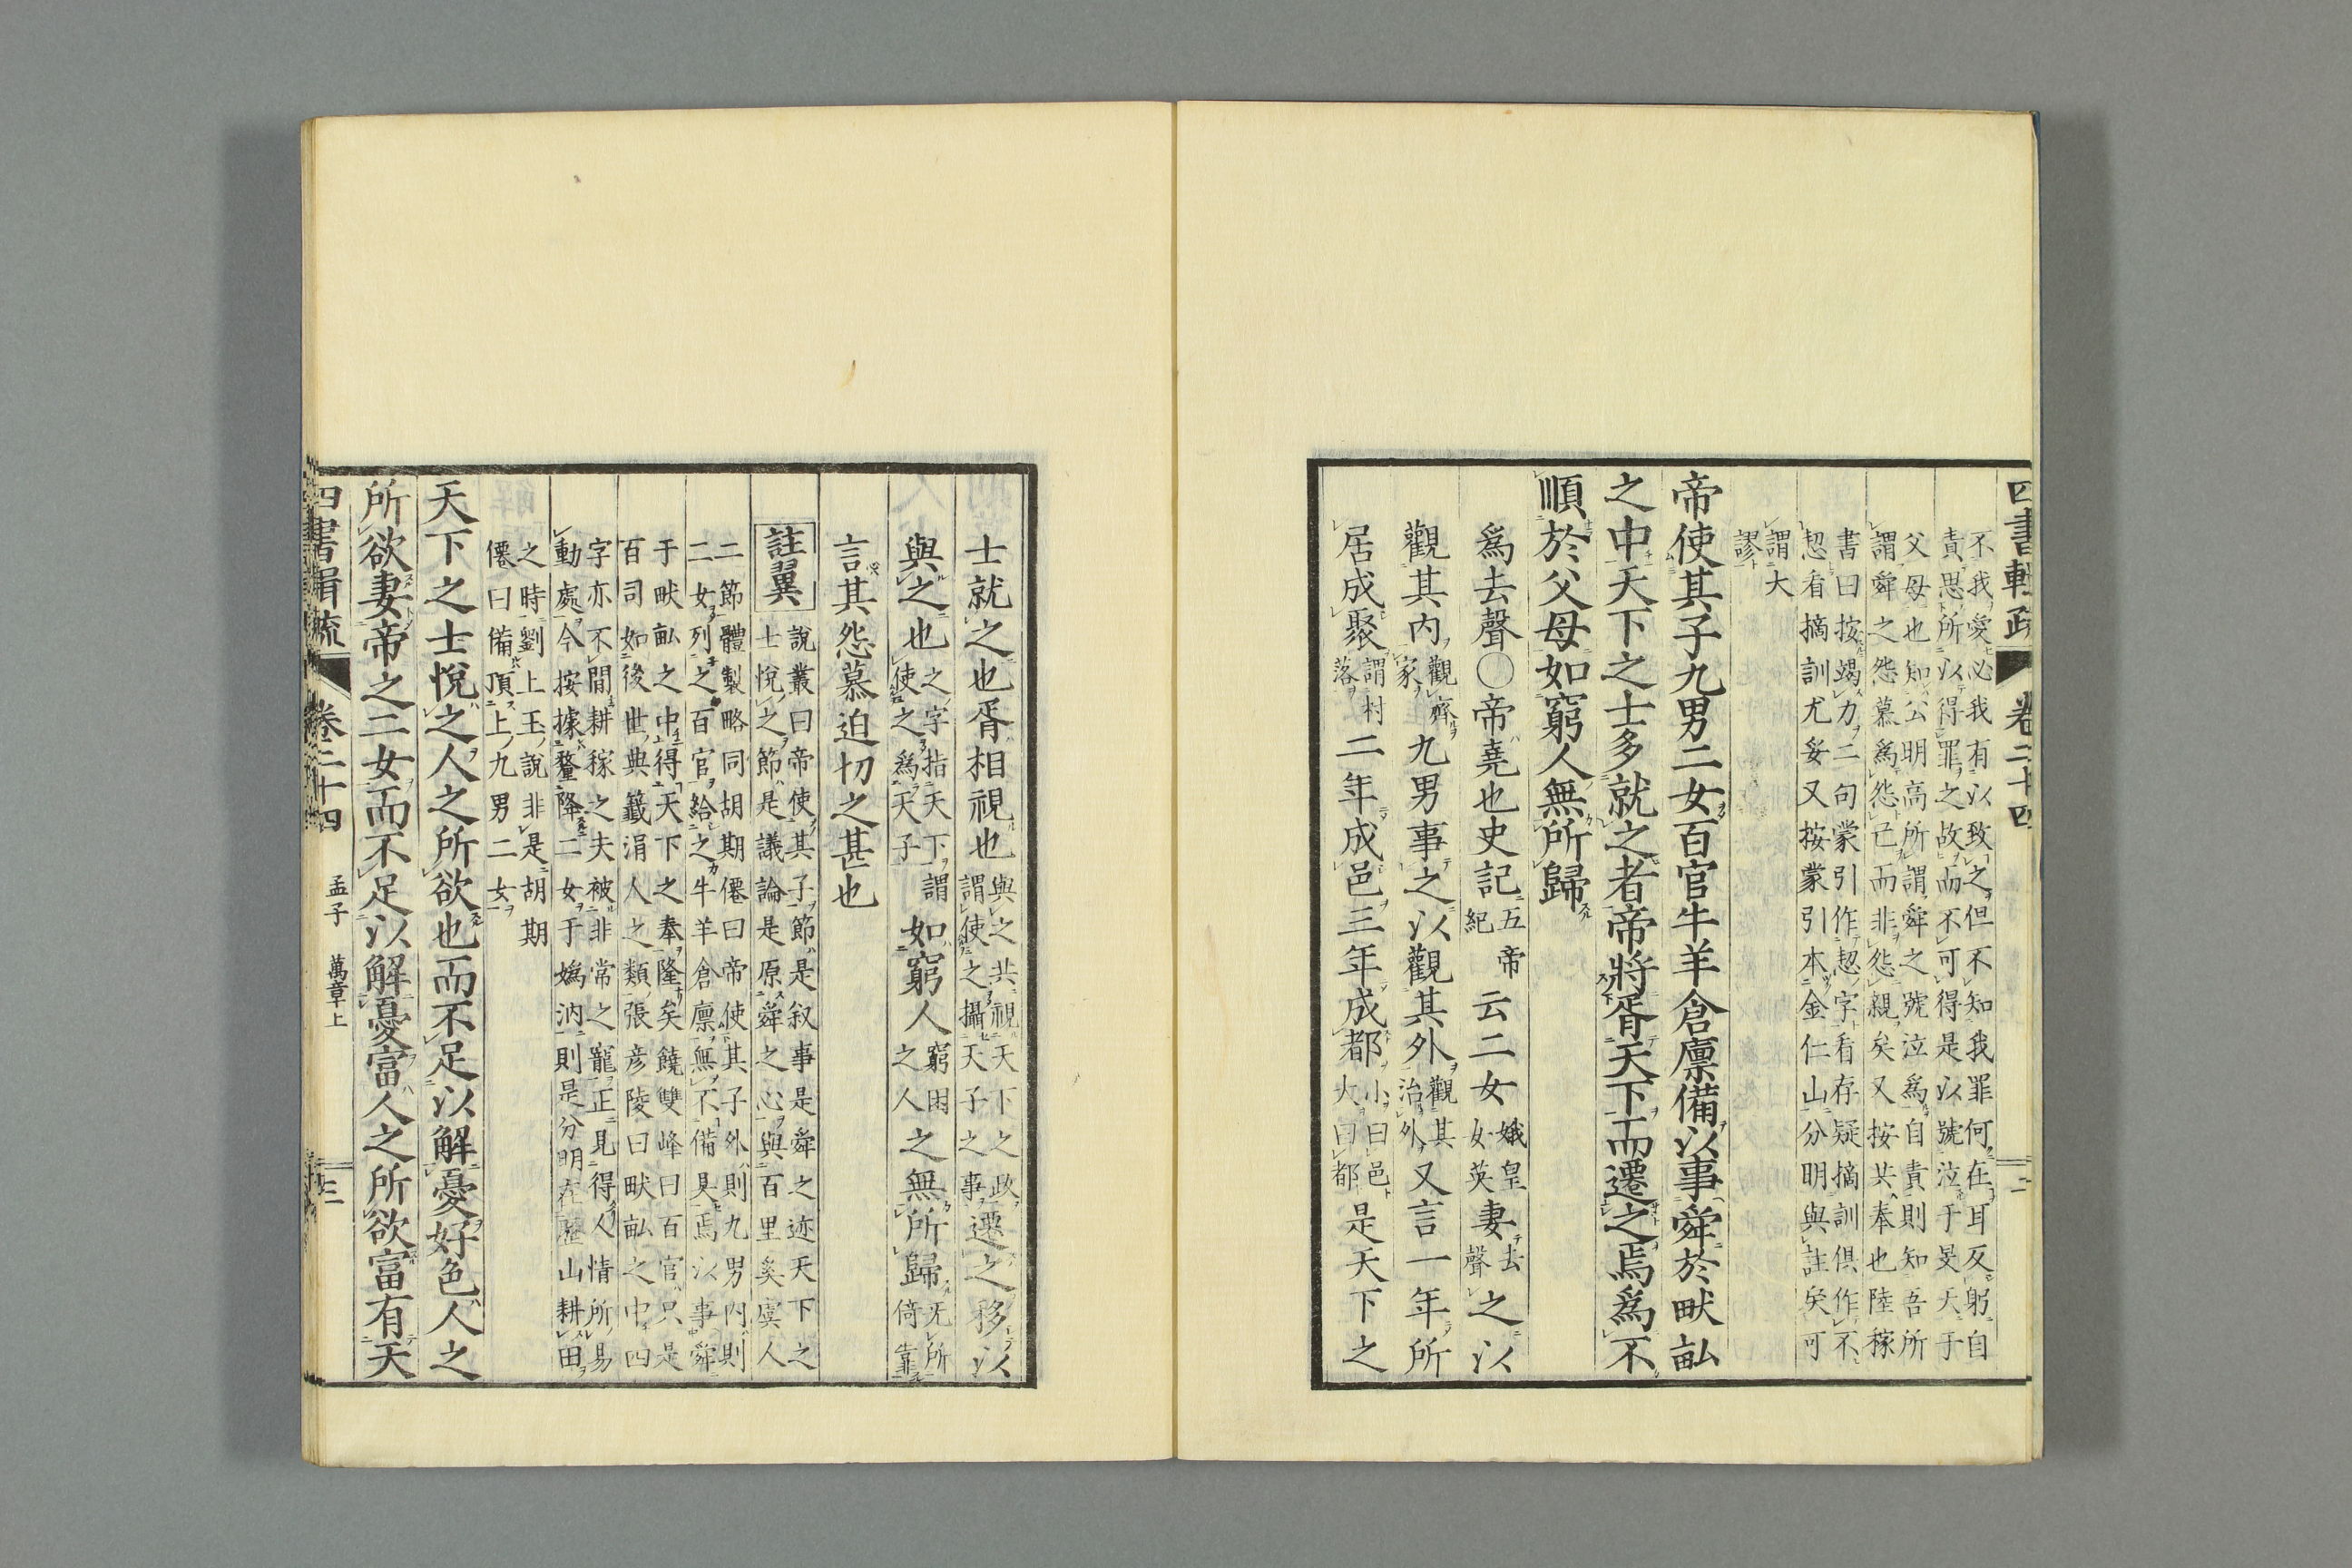 四書輯疏 卷二十四 二
不我愛必我有以致之但不知我罪何在耳反躬自
責思所以得罪之故而不可得是以號泣于旻天于
父母也知公明高所謂舜之號泣為自責則知吾所
謂舜之怨慕為怨己而非怨親矣又按共奉也陸稼
書曰按竭力二句蒙引作恝字看存疑摘訓俱作不
恝看摘訓尤妥又按蒙引本金仁山分明與註矣可
謂大
謬
帝使其子九男二女百官牛羊倉廩備以事舜於畎畝
之中天下之士多就之者帝將胥天下而遷之焉為不
順於父母如窮人無所歸
為去聲○帝堯也史記五帝紀云二女娥皇女英妻去聲之以
觀其內觀齊家九男事之以觀其外觀其治外又言一年所
居成聚謂村落二年成邑三年成都小曰邑大曰都是天下之
士就之也胥相視也與之共視天下之政謂使之攝天子之事遷之移以
與之也之字指天下謂使之為天子如窮人窮困之人之無所歸无所倚靠
言其怨慕迫切之甚也
註翼
說叢曰帝使其子節是叙事是舜之迹天下之
士悅之節是議論是原舜之心與百里奚虞人
二節體製略同胡期僊曰帝使其子外則九男內則
二女列之百官給之牛羊倉廩無不備具焉以事舜
于畎畝之中得天下之奉隆矣饒雙峰曰百官只是
百司如後世典籤涓人之類張彥陵曰畎畝之中四
字亦不閒耕稼之夫被非常之寵正見得人情所易
動處今按據釐降二女于嬀汭則是分明在歷山耕田
之時劉上玉說非是胡期
僊曰備頂上九男二女
天下之士悅之人之所欲也而不足以解憂好色人之
所欲妻帝之二女而不足以解憂富人之所欲富有天
四書輯疏 卷二十四 孟子 萬章上 三